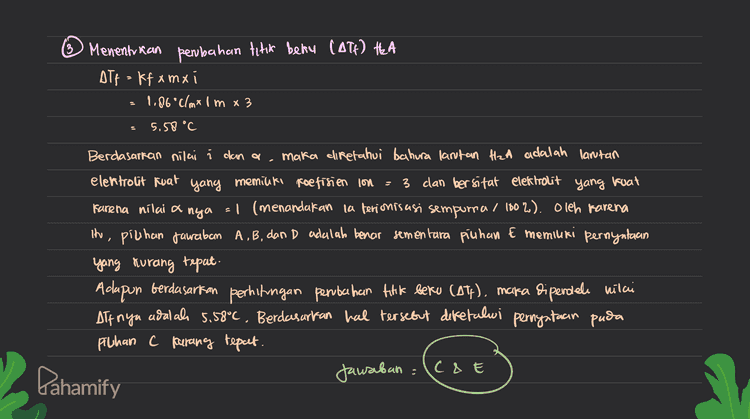 ③ Menentukan perubahan titik beku (ΔTf) H2A
ΔTf = Kf x m x i
= 1,86°C/m x 1 m x 3
= 5.58 °C
Berdasarkan nilai i dan α, maka diketahui bahwa larutan H2A adalah larutan
elektrolit kuat yang memiliki koefisien ion = 3 dan bersifat elektrolit yang kuat
karena nilai α nya = 1 (menandakan ia terionisasi sempurna / 100%). Oleh karena
itu, pilihan jawaban A, B, dan D adalah benar sementara pilihan E memiliki pernyataan
yang kurang tepat.
Adapun berdasarkan perhitungan perubahan titik beku (ΔTf), maka diperoleh nilai
ΔTf nya adalah 5,58°C. Berdasarkan hal tersebut diketahui pernyataan pada
pilihan C kurang tepat.
Jawaban : C & E
Pahamify